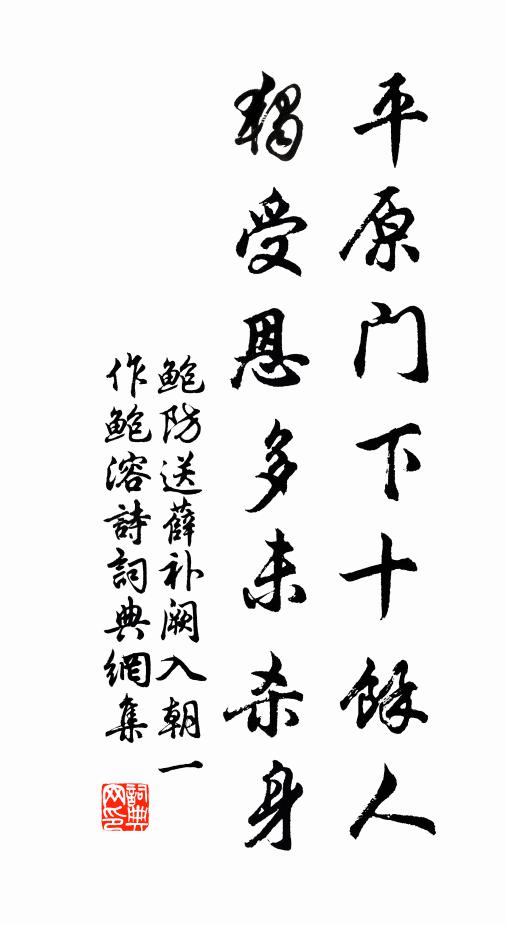 平原门下十餘人
獨受恩多未杀身
鲍防送薛补阙入朝一
作鲍溶詩詞典網集
詞典网印